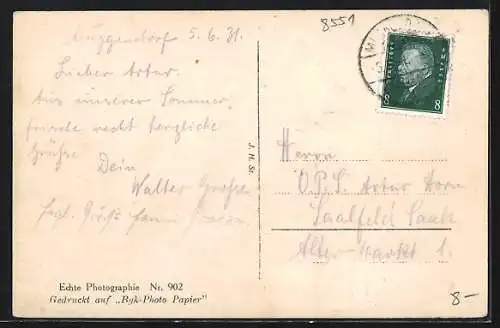 Muggendorf 5.6.31.
Lieber Artur.
Aus unserer Sommer
frische recht herzliche
Grüße Dein
Walter
8551
8
8
J. H. St.
Herrn
O.P.S. Artur Horn
Saalfeld Saale
Alter-Markt 1.
Echte Photographie Nr. 902
Gedruckt auf „Byk-Photo Papier"
8-